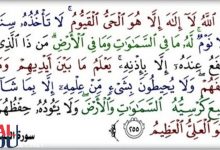 ٱللَّهُ لَآ إِلَٰهَ إِلَّا هُوَ ٱلْحَىُّ ٱلْقَيُّومُ لَا تَأْخُذُهُۥ
نَوْمٌ لَّهُۥ مَا فِى ٱلسَّمَٰوَٰتِ وَمَا فِى ٱلْأَرْضِ مَن ذَا ٱلَّذِى
عِندَهُۥٓ إِلَّا بِإِذْنِهِۦ يَعْلَمُ مَا بَيْنَ أَيْدِيهِمْ
وَلَا يُحِيطُونَ بِشَىْءٍ مِّنْ عِلْمِهِۦٓ إِلَّا بِمَا
كُرْسِيُّهُ ٱلسَّمَٰوَٰتِ وَٱلْأَرْضَ وَلَا يَـُٔودُهُۥ حِفْظُهُمَا
ٱلْعَلِىُّ ٱلْعَظِيمُ ٢٥٥ سورة